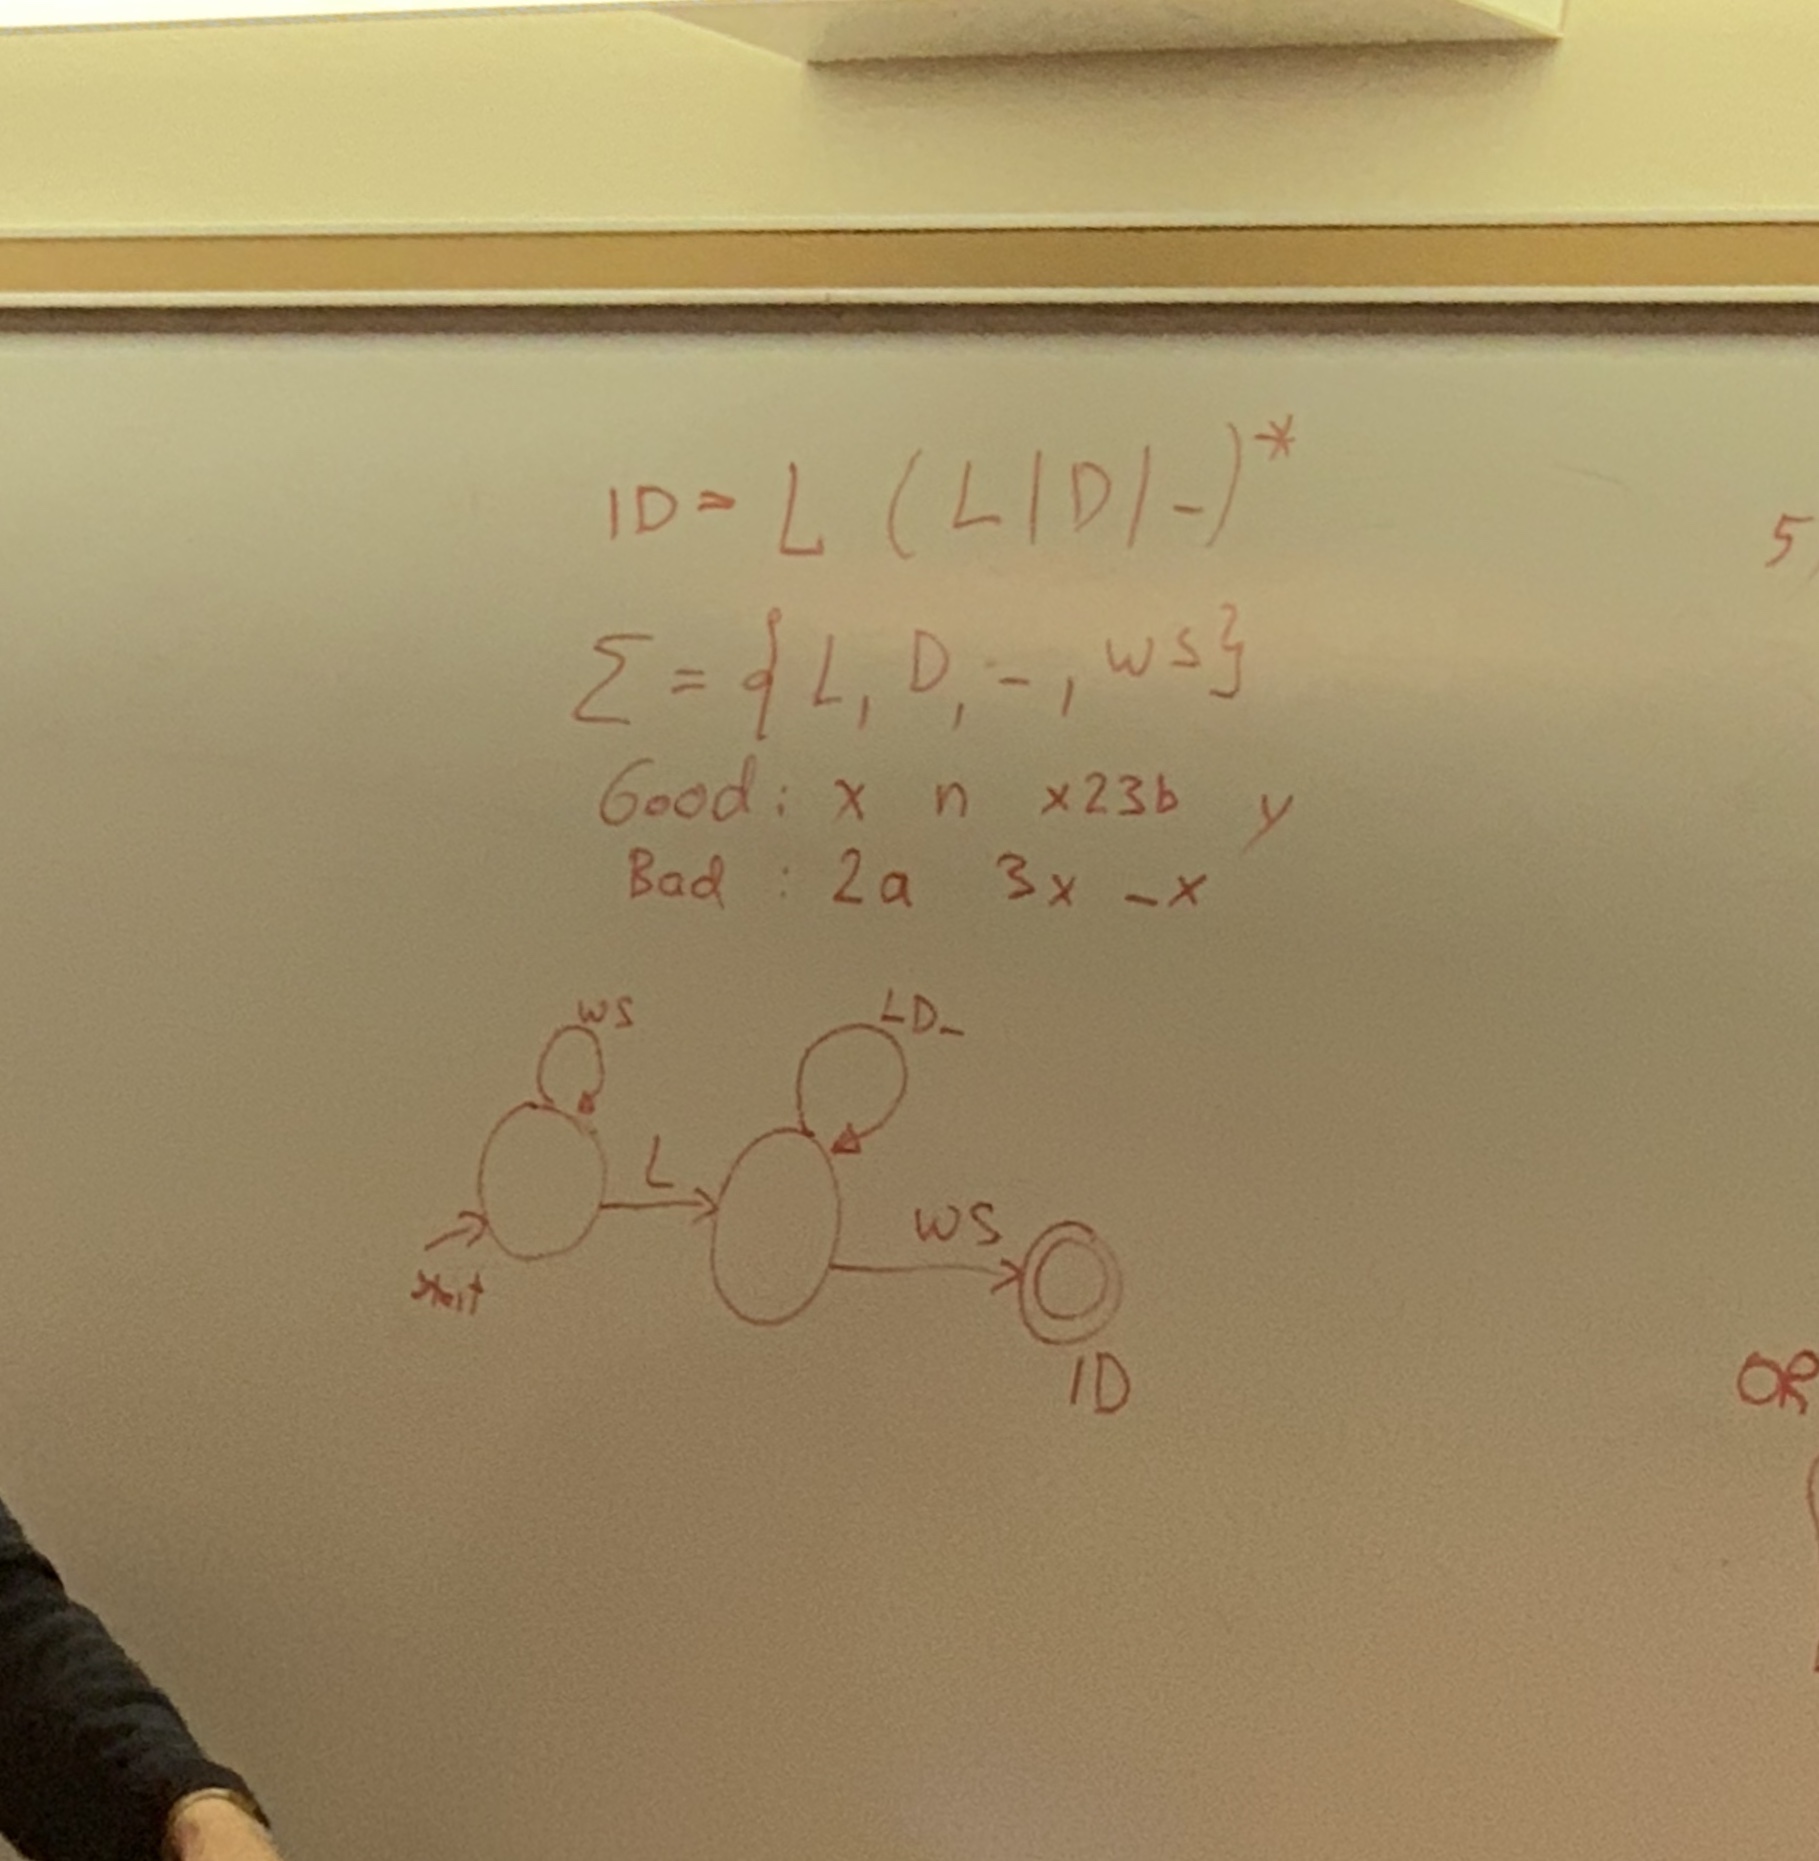 ID = L (L|D|_)*
Σ = {L, D, _, WS}
Good: x n x23b y
Bad: 2a 3x _x
WS
LD_
L
WS
start
ID
5
OR